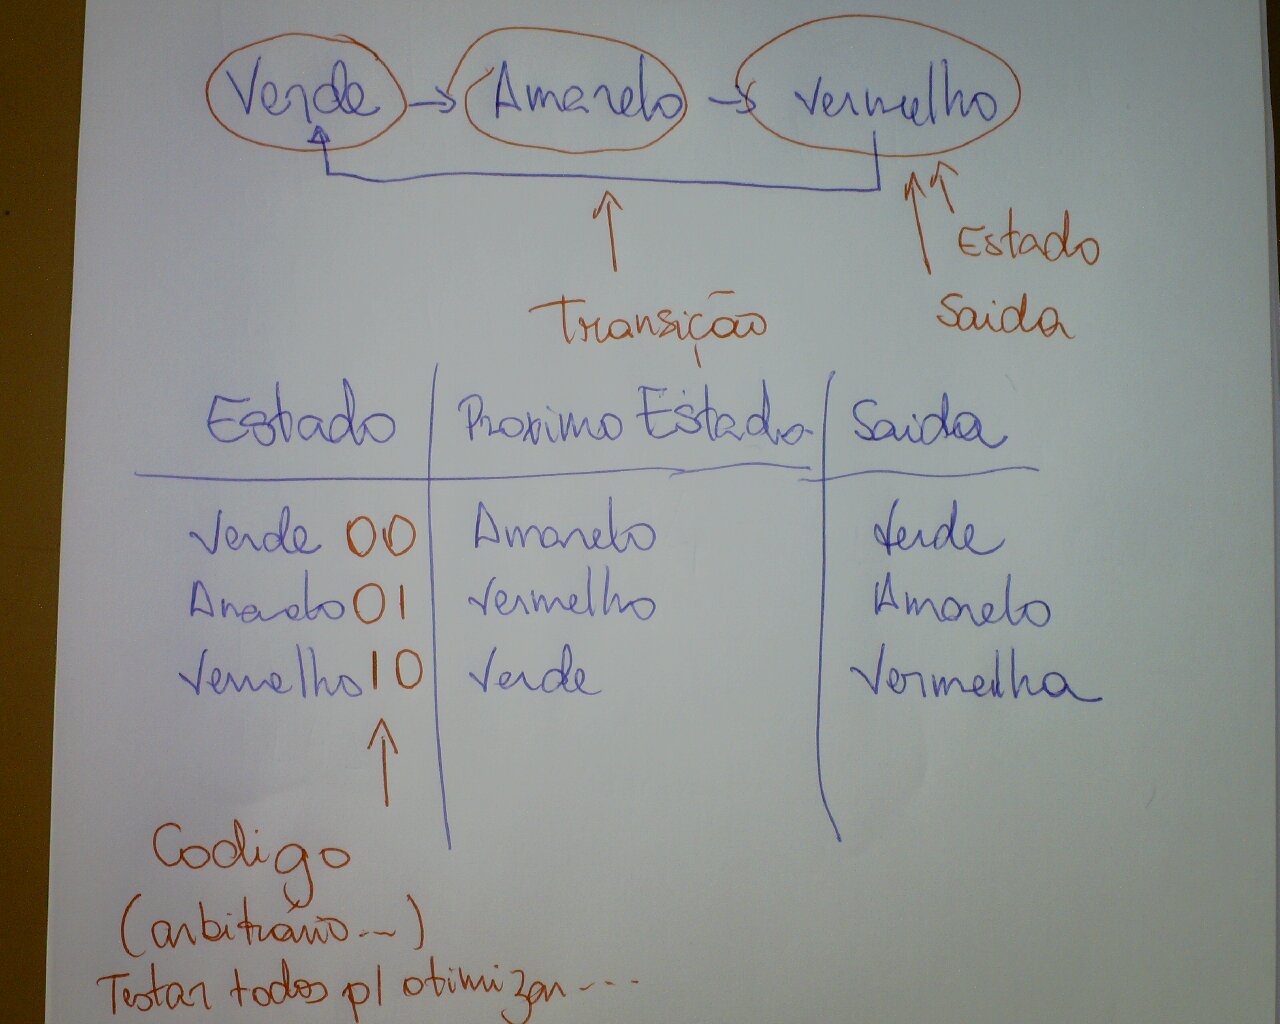 Verde → Amarelo → Vermelho
Estado
Saida
Transição
Estado Proximo Estado Saida
Verde 00 Amarelo Verde
Amarelo 01 Vermelho Amarelo
Vermelho 10 Verde Vermelha
Codigo
(arbitrário...)
Testar todos p/ otimizar...